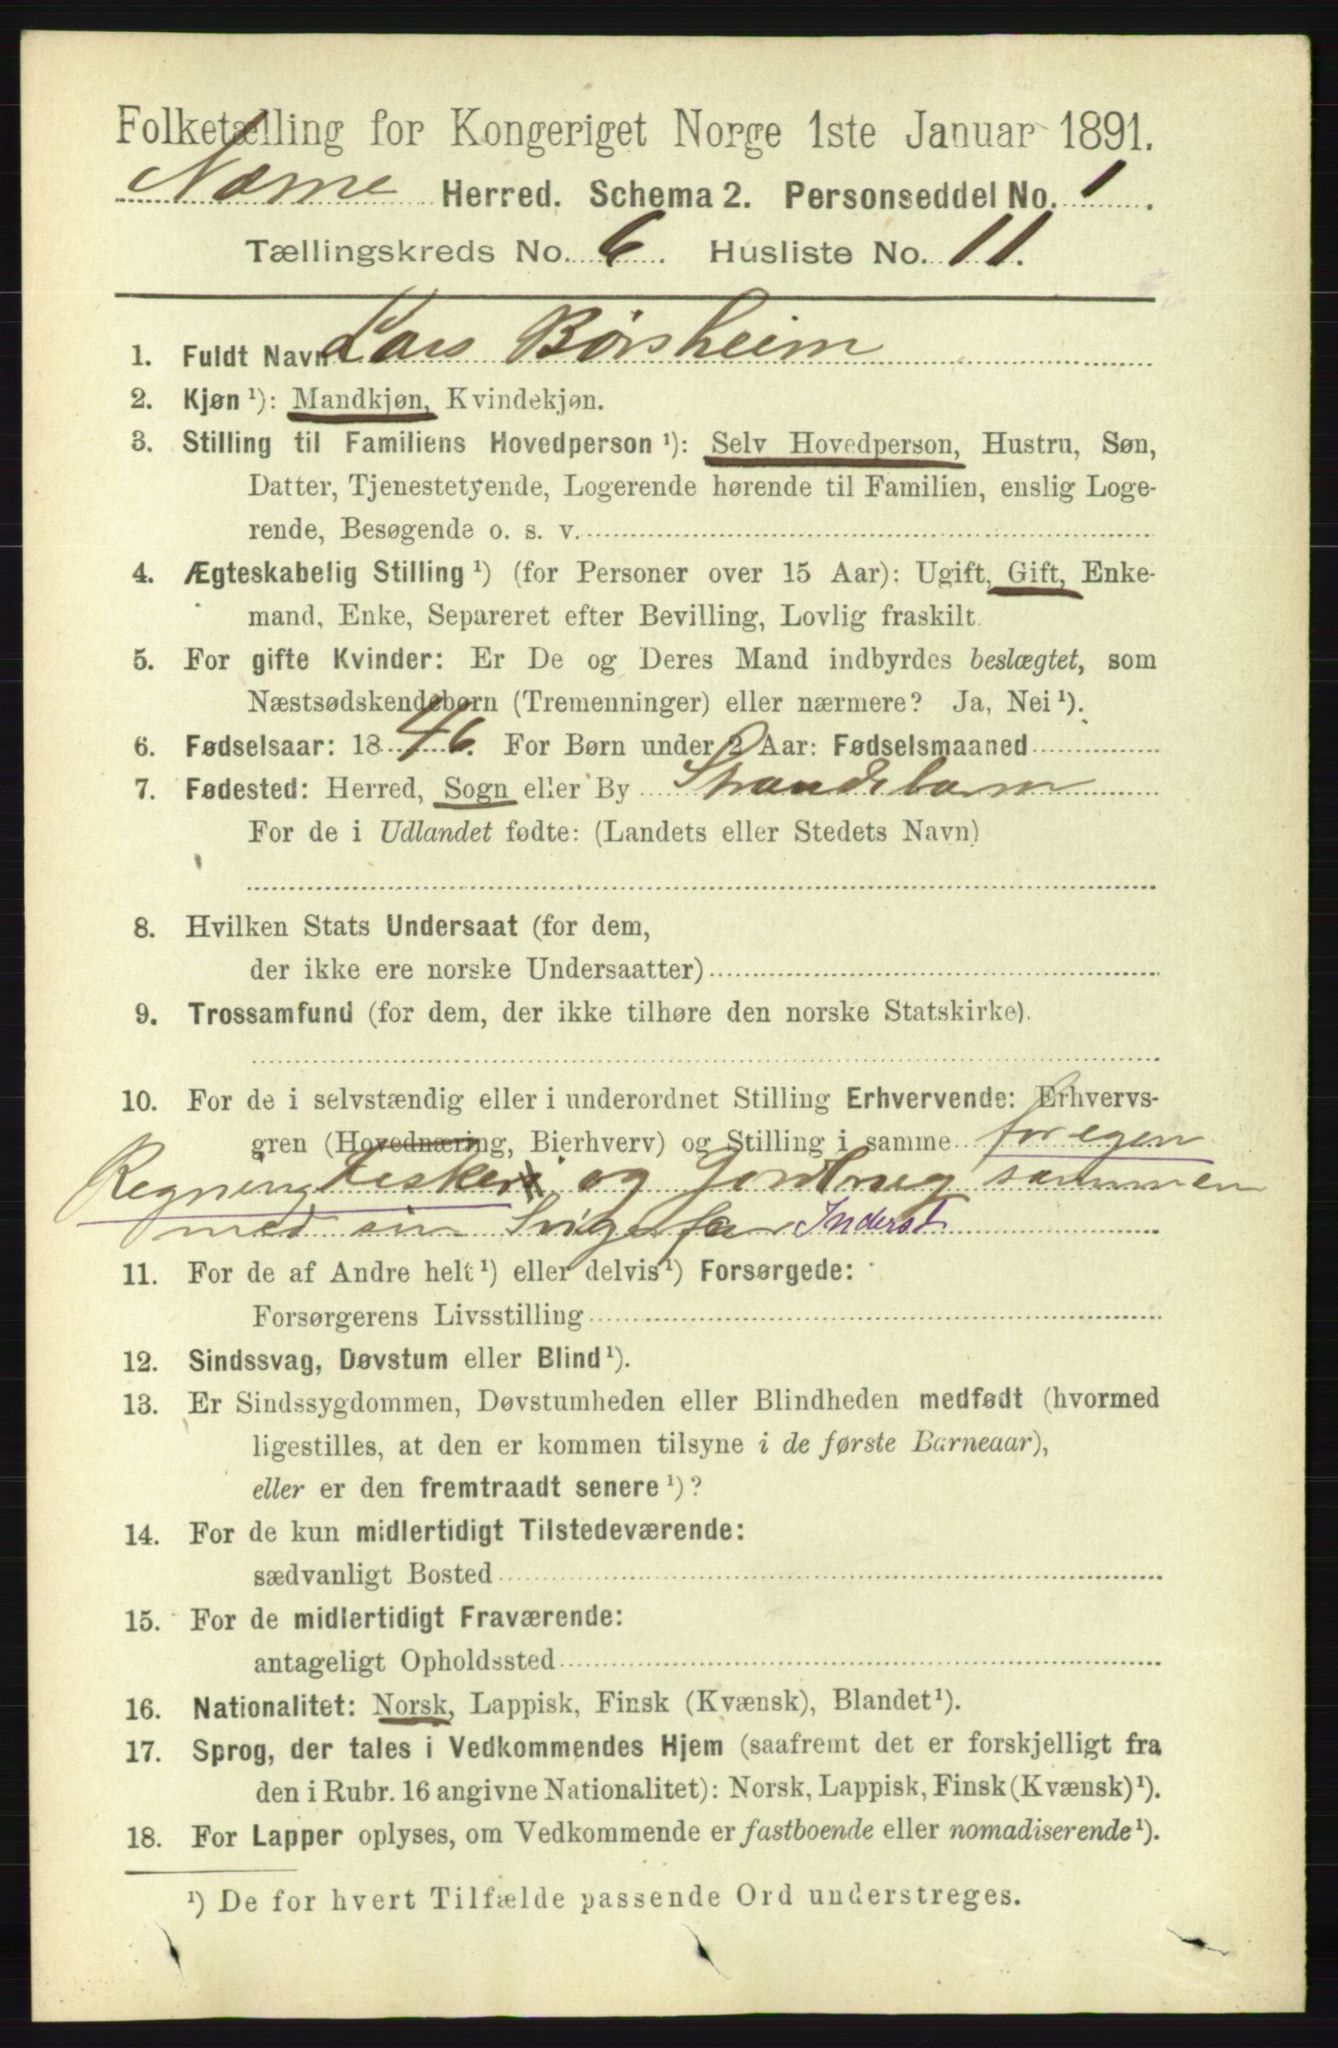 Folketælling for Kongeriget Norge 1ste Januar 1891.
Herred. Schema 2. Personseddel No. 1.
Tællingskreds No. 6. Husliste No. 11.
1. Fuldt Navn Lars Børsheim
2. Kjøn ¹): Mandkjøn, Kvindekjøn.
3. Stilling til Familiens Hovedperson ¹): Selv Hovedperson, Hustru, Søn,
Datter, Tjenestetyende, Logerende hørende til Familien, enslig Loge-
rende, Besøgende o. s. v.
4. Ægteskabelig Stilling ¹) (for Personer over 15 Aar): Ugift, Gift, Enke-
mand, Enke, Separeret efter Bevilling, Lovlig fraskilt.
5. For gifte Kvinder: Er De og Deres Mand indbyrdes beslægtet, som
Næstsødskendebørn (Tremenninger) eller nærmere? Ja, Nei ¹).
6. Fødselsaar: 1846. For Børn under 2 Aar: Fødselsmaaned
7. Fødested: Herred, Sogn eller By Strandebarm
For de i Udlandet fødte: (Landets eller Stedets Navn)
8. Hvilken Stats Undersaat (for dem,
der ikke ere norske Undersaatter)
9. Trossamfund (for dem, der ikke tilhøre den norske Statskirke).
10. For de i selvstændig eller i underordnet Stilling Erhvervende: Erhvervs-
gren (Hovednæring, Bierhverv) og Stilling i samme for egen
Regning Fisker og Jordbrug sammen
med sin Svigerfar Inderst
11. For de af Andre helt ¹) eller delvis ¹) Forsørgede:
Forsørgerens Livsstilling
12. Sindssvag, Døvstum eller Blind ¹).
13. Er Sindssygdommen, Døvstumheden eller Blindheden medfødt (hvormed
ligestilles, at den er kommen tilsyne i de første Barneaar),
eller er den fremtraadt senere ¹)?
14. For de kun midlertidigt Tilstedeværende:
sædvanligt Bosted
15. For de midlertidigt Fraværende:
antageligt Opholdssted
16. Nationalitet: Norsk, Lappisk, Finsk (Kvænsk), Blandet ¹).
17. Sprog, der tales i Vedkommendes Hjem (saafremt det er forskjelligt fra
den i Rubr. 16 angivne Nationalitet): Norsk, Lappisk, Finsk (Kvænsk) ¹).
18. For Lapper oplyses, om Vedkommende er fastboende eller nomadiserende ¹).
¹) De for hvert Tilfælde passende Ord understreges.